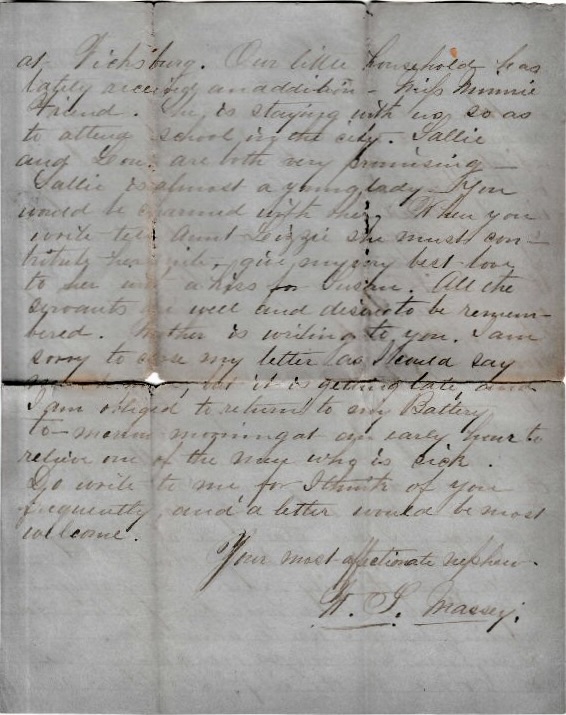 at Vicksburg. Our little household has
lately received an addition - Miss Minnie
Friend. She is staying with us so as
to attend school in the city. Sallie
and Lou. are both very promising -
Sallie is almost a young lady - You
would be charmed with her. When you
write tell Aunt Lizzie she must con-
tribute her, give my very best love
to her with a kiss for Susan. All the
servants are well and desire to be remem-
bered. Mother is writing to you. I am
sorry to close my letter as I could say
much more, but it is getting late, and
I am obliged to return to my Battery
to-morrow morning at an early hour to
relieve one of the men who is sick.
Do write to me for I think of you
frequently and a letter would be most
welcome.
Your most affectionate nephew.
W. S. Massey.